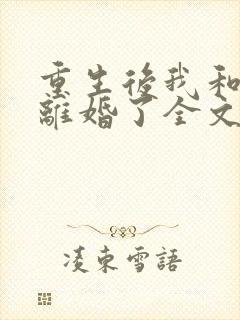 重生後我和
離婚了全文
凌東雪語